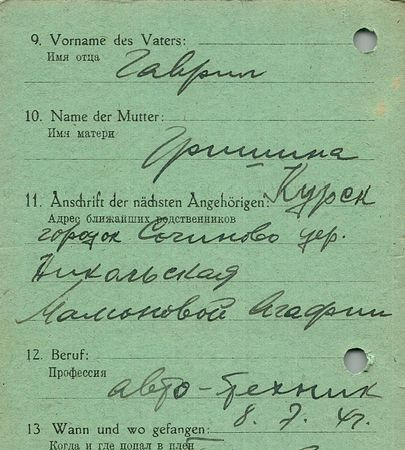 9. Vorname des Vaters:
Имя отца
Гаврил
10. Name der Mutter:
Имя матери
Гришина
11. Anschrift der nächsten Angehörigen: Курск
Адрес ближайших родственников
городок Сочиново дер.
Никольская
Мамоновой Агафии
12. Beruf:
Профессия
авто-техник
13 Wann und wo gefangen: 8. 7. 41.
Когда и где попал в плен